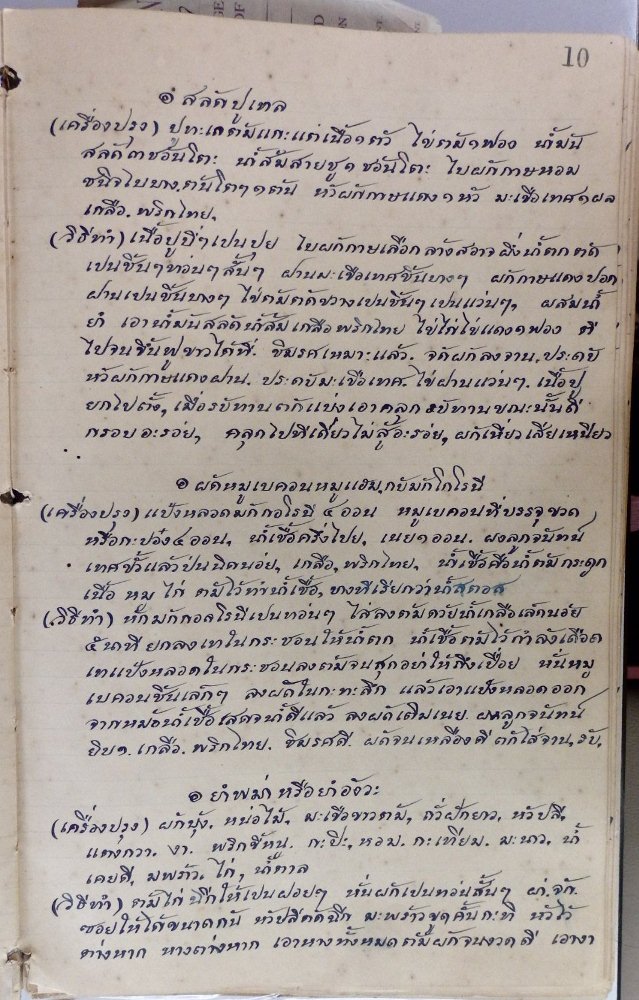 10
๏ สลัดปูเทล
(เครื่องปรุง) ปูทะเลต้มแกะแต่เนื้อ ๑ ตัว ไข่ต้ม ๑ ฟอง น้ำมัน
สลัด ๓ ช้อนโต๊ะ น้ำส้มสายชู ๑ ช้อนโต๊ะ ใบผักกาดหอม
ชนิดใบบาง, ต้นโตๆ ๑ ต้น หัวผักกาดแดง ๑ หัว มะเขือเทศ ๑ ผล
เกลือ. พริกไทย,
(วิธีทำ) เนื้อปูบี้ๆเปนปุย ใบผักกาดเลือกล้างสอาจผึ่งน้ำตกตัด
เปนชิ้นๆท่อนๆสั้นๆ ฝานมะเขือเทศชิ้นบางๆ ผักกาดแดงปอก
ฝานเปนชิ้นบางๆ ไข่ต้มตัดขวางเปนชิ้นๆเปนแว่นๆ, ผสมน้ำ
ยำ เอาน้ำมันสลัดน้ำส้มเกลือพริกไทย ไข่ไก่ไข่แดง ๑ ฟอง ตี
ไปจนขึ้นฟูขาวได้ที่. ชิมรศเหมาะแล้ว. จัดผักลงจาน, ประดับ
หัวผักกาดแดงฝาน. ประดับมะเขือเทศ. ไข่ฝานแว่นๆ. เนื้อปู
ยกไปตั้ง, เมื่อรับทานตักแบ่งเอาคลุก รับทานขณะนั้นดี
กรอบอะร่อย, คลุกไปทีเดียวไม่สู้อะร่อย, ผักเหี่ยวเสียเหนียว
๏ ผัดหมูเบคอนหมูแฮม, กับมักโกโรนี
(เครื่องปรุง) แป้งหลอดมักกอโรนี ๔ ออน หมูเบคอนที่บรรจุขวด
หรือกะป๋อง ๔ ออน, น้ำเชื้อครึ่งไปย, เนย ๑ ออน. ผงลูกจันทน์
เทศขั้วแล้วป่นนิดน่อย, เกลือ, พริกไทย, น้ำเชื้อคือน้ำต้มกระดูก
เนื้อ หมู ไก่ ต้มไว้ทำน้ำเชื้อ, บางทีเรียกว่าน้ำสตอส
(วิธีทำ) หักมักกอลโรนีเปนท่อนๆ ใส่ลงต้มด้วยน้ำเกลือเล็กน้อย
๕ นาที ยกลงเทในกระชอนให้น้ำตก น้ำเชื้อต้มไว้กำลังเดือด
เทแป้งหลอดในกระชอนลงต้มจนสุกอย่าให้ถึงเปื่อย หั่นหมู
เบคอนชิ้นเล็กๆ ลงผัดในกะทะลึก แล้วเอาแป้งหลอดออก
จากหม้อน้ำเชื้อเสดจน้ำดีแล้ว ลงผัดเติมเนย ผงลูกจันทน์
ยิบ ๑. เกลือ. พริกไทย. ชิมรศดี. ผัดจนเหลืองดี ตักใส่จาน, รับ,
๏ ยำพม่า หรือยำอังวะ
(เครื่องปรุง) ผักบุ้ง. หน่อไม้, มะเขือขาวต้ม, ถั่วฝักยาว, หัวปลี,
แตงกวา. งา. พริกขี้หนู. กะปิ, หอม. กะเทียม. มะนาว. น้ำ
เคยดี, มพร้าว, ไก่, น้ำตาล
(วิธีทำ) ต้มไก่ ฉีกให้เปนฝอยๆ หั่นผักเปนท่อนสั้นๆ ผ่า, จัก,
ซอยให้ได้ขนาดกัน หัวปลีตัดฉีก มะพร้าวขูดคั้นกะทิ หัวไว้
ต่างหาก หางต่างหาก เอาหางทั้งหมดต้มผักจนงวดดี เอางา